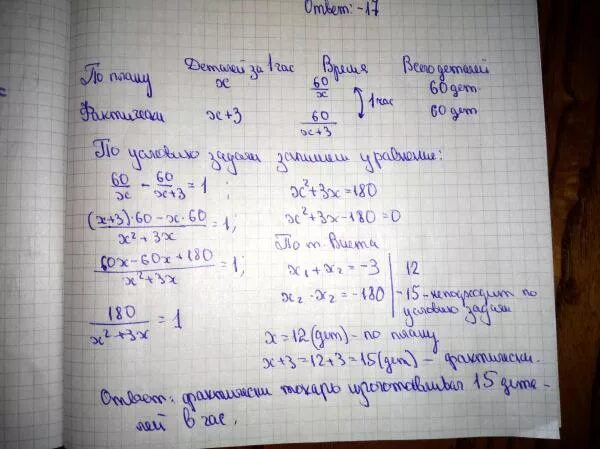 Ответ: -17
Деталей за 1 час Время Всего деталей
По плану x 60/x 60 дет
1 час
Фактически x+3 60/x+3 60 дет
По условию задачи запишем уравнение:
60/x - 60/x+3 = 1;
(x+3)·60-x·60/x²+3x = 1;
60x-60x+180/x²+3x = 1;
180/x²+3x = 1
x²+3x=180
x²+3x-180=0
По т. Виета
x₁+x₂=-3 | 12
x₂·x₂=-180 | -15 - не подходит по
условию задачи
x=12 (дет) - по плану
x+3=12+3=15 (дет) - фактически.
Ответ: фактически токарь изготавливал 15 дета-
лей в час.